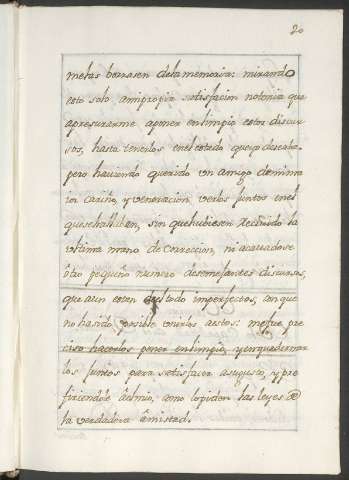 20
melas borrasen dela memoria: mirando
esto solo, amipropia satisfacion notenia que
apresurarme aponer enlimpio estos discur
sos, hasta tenerlos enelestado queyo deseaba.
pero haviendo querido un amigo demima
ior cariño, y veneracion, verlos juntos enel
quesehallaban, sin quehubiesen recivido la
ultima mano de correccion, ni acavadose
otro pequeño numero desemejantes discursos,
que aun estan deltodo imperfectos, aunque
no hasido posible unirlos aestos: mefue pre
ciso hacerlos poner enlimpio, yenquadernar
los juntos para satisfacer asugusto, y pre
firiendole àelmio, como lopiden las leyes de
la verdadera âmistad.